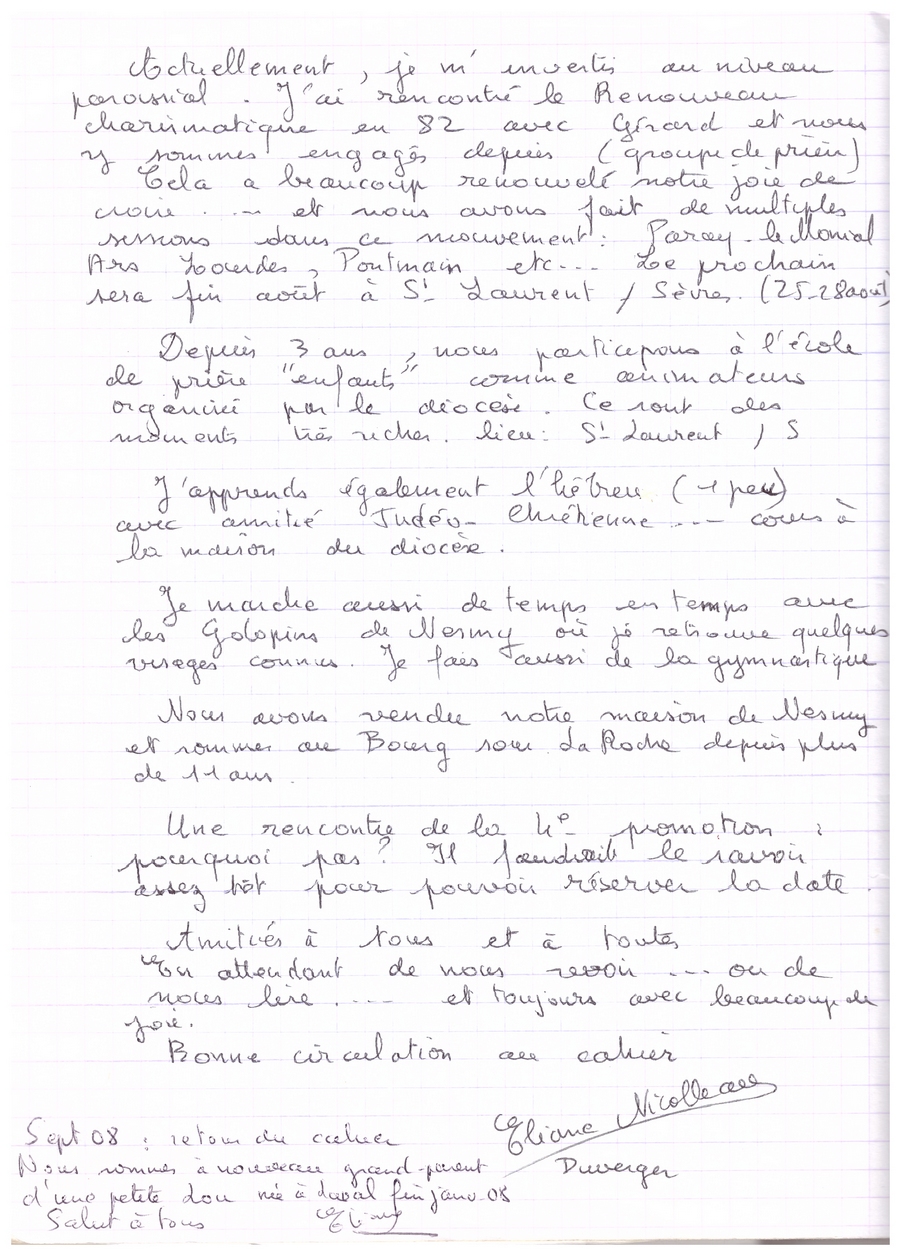 Actuellement, je m'investis au niveau
paroissial. J'ai rencontré le Renouveau
charismatique en 82 avec Gérard et nous
y sommes engagés depuis (groupe de prière)
Cela a beaucoup renouvelé notre joie de
croire ... et nous avons fait de multiples
sessions dans ce mouvement : Paray-le Monial
Ars Lourdes, Pontmain etc... Le prochain
sera fin août à St Laurent / Sèvres. (25-28 août)
Depuis 3 ans, nous participons à l'école
de prière "enfants" comme animateurs
organisé par le diocèse. Ce sont des
moments très riches. lieu : St Laurent / S
J'apprends également l'hébreu (1 peu)
avec amitié Judéo-Chrétienne .... cours à
la maison du diocèse.
Je marche aussi de temps en temps avec
les Galopins de Nesmy où je retrouve quelques
visages connus. Je fais aussi de la gymnastique
Nous avons vendu notre maison de Nesmy
et sommes au Bourg sous La Roche depuis plus
de 11 ans.
Une rencontre de la 4e promotion :
pourquoi pas ? Il faudrait le savoir
assez tôt pour pouvoir réserver la date.
Amitiés à tous et à toutes
En attendant de nous revoir ... ou de
nous lire .... et toujours avec beaucoup de
joie.
Bonne circulation au cahier
Eliane Nicolleau
Duverger
Sept 08 : retour du cahier
Nous sommes à nouveau grand-parent
d'une petite Lou née à Laval fin janv. 08
Salut à tous Eliane